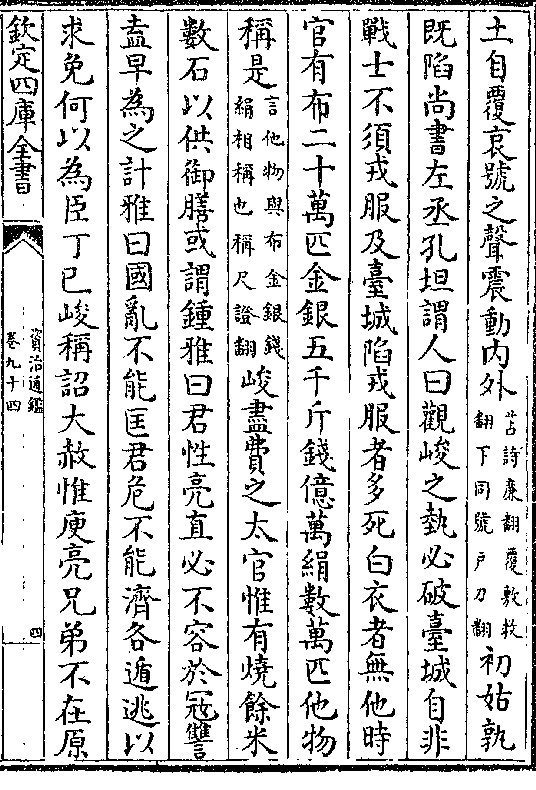 土自覆哀號之聲震動內外苫詩廉翻覆敷救翻下同號戶刀翻初姑孰
既陷尚書左丞孔坦謂人曰觀峻之埶必破臺城自非
戰士不須戎服及臺城陷戎服者多死白衣者無他時
官有布二十萬匹金銀五千斤錢億萬絹數萬匹他物
稱是言他物與布金銀錢絹相稱也稱尺證翻峻盡費之太官惟有燒餘米
數石以供御膳或謂鍾雅曰君性亮直必不容於寇讐
盍早為之計雅曰國亂不能匡君危不能濟各遁逃以
求免何以為臣丁巳峻稱詔大赦惟庾亮兄弟不在原
欽定四庫全書
資治通鑑
卷九十四
四